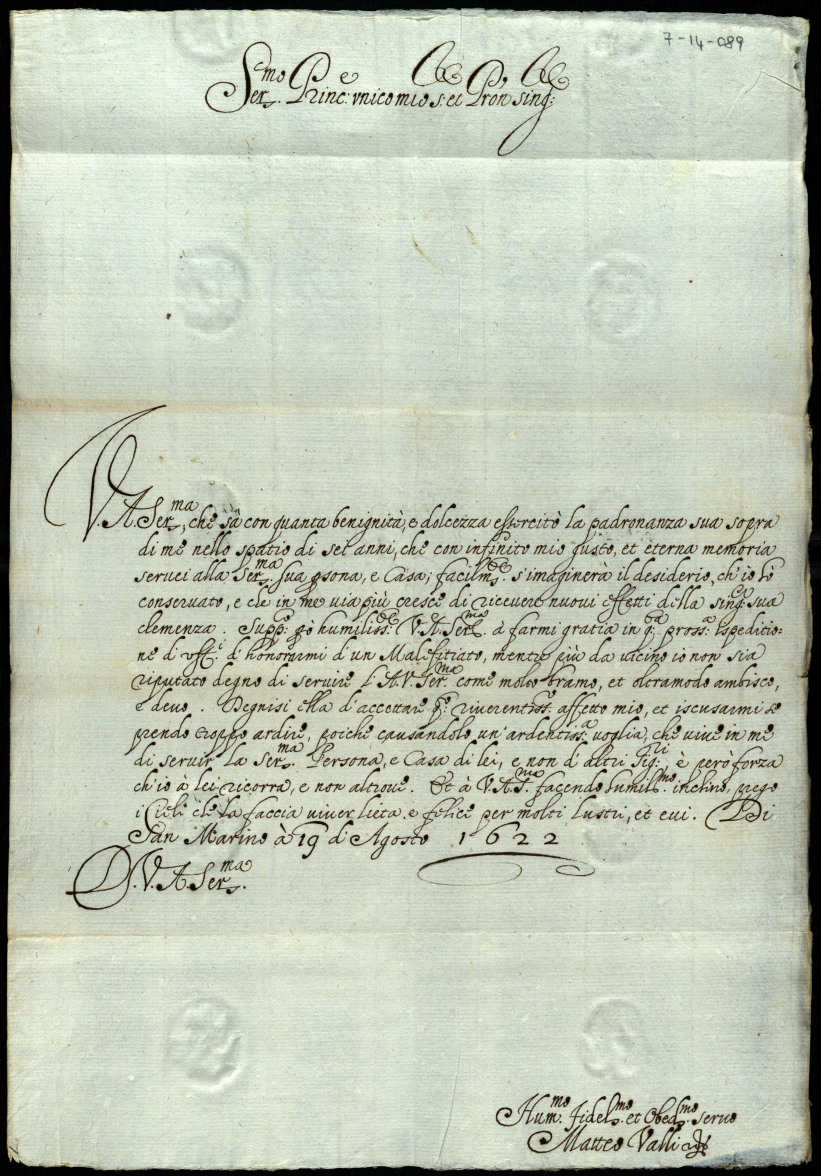 7-14-089
Ser.mo Princ.e unico mio s: et Pron sing:
V. A. Ser.ma, che sà con quanta benignità, e dolcezza essercitò la padronanza sua sopra
di me nello spatio di sei anni, che con infinito mio gusto, et eterna memoria
servei alla Ser.ma sua psona, e Casa; facilm.te s'imaginerà il desiderio, ch'io hò
conservato, e che in me via più cresce di ricevere nuovi effetti della sing.a sua
clemenza. Supp.co pò humiliss.te V. A. Ser.ma à farmi gratia in q.a pross.a espeditio-
ne d'uff.i d'honorarmi d'un Malefitiato, mentre più da vicino io non sia
riputato degno di servire l'A. V. Ser.ma come molto bramo, et oltramodo ambisco,
e devo. Degnisi ella d'accettare q.o riverentiss. affetto mio, et iscusarmi se
prendo troppo ardire, poiche causandolo un'ardentiss.a voglia, che vive in me
di servir la Ser.ma Persona, e Casa di lei, e non d'altri Sig.ri, è però forza
ch'io à lei ricorra, e non altrove. Et à V. A. S.ma facendo humiliss.mo inchino, prego
i Cieli che la faccia viver lieta, e felice per molti lustri, et evi. Di
San Marino à 19 d'Agosto 1622
D. V. A. Ser.ma
Hum.mo Fidel.mo et Obed.mo servo
Matteo Valli